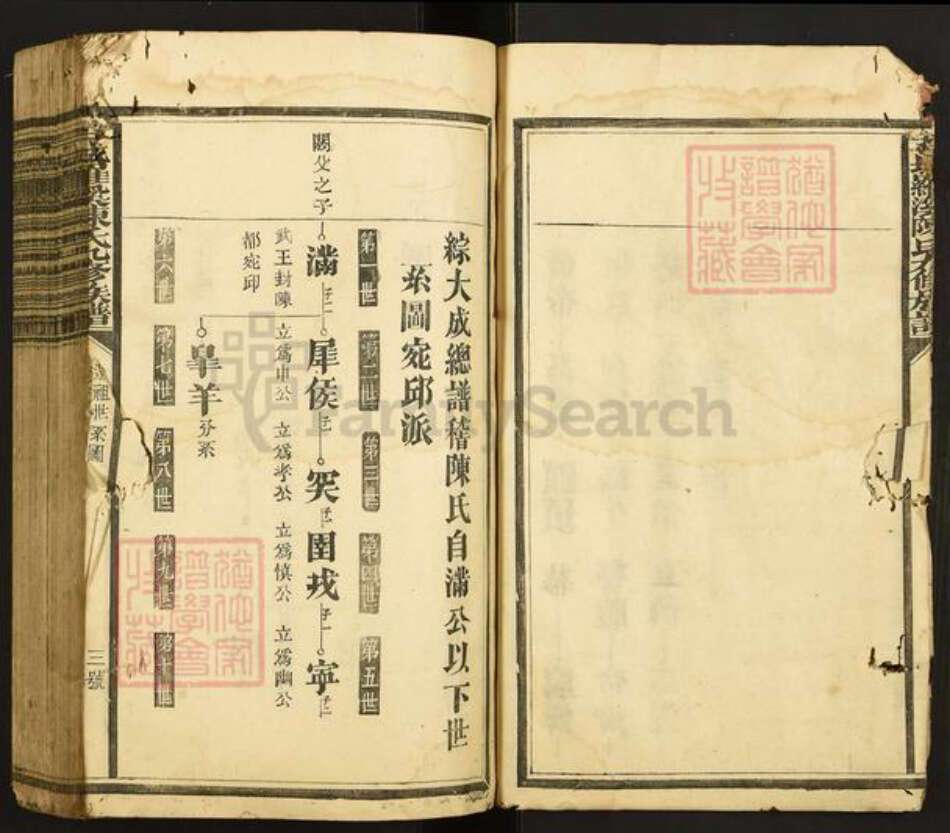 綜大成總譜稽陳氏自滿公以下世
系圖宛邱派
第一世
第二世
第三世
第四世
第五世
閼父之子
滿
犀侯
突
圉戎
寧
武王封陳
都宛邱
立爲申公
立爲孝公
立爲慎公
立爲幽公
皋羊
分系
第六世
第七世
第八世
第九世
第十世
陳氏九修族譜
世系圖
三號
FamilySearch